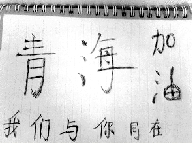 青海
加油
我们与你同在